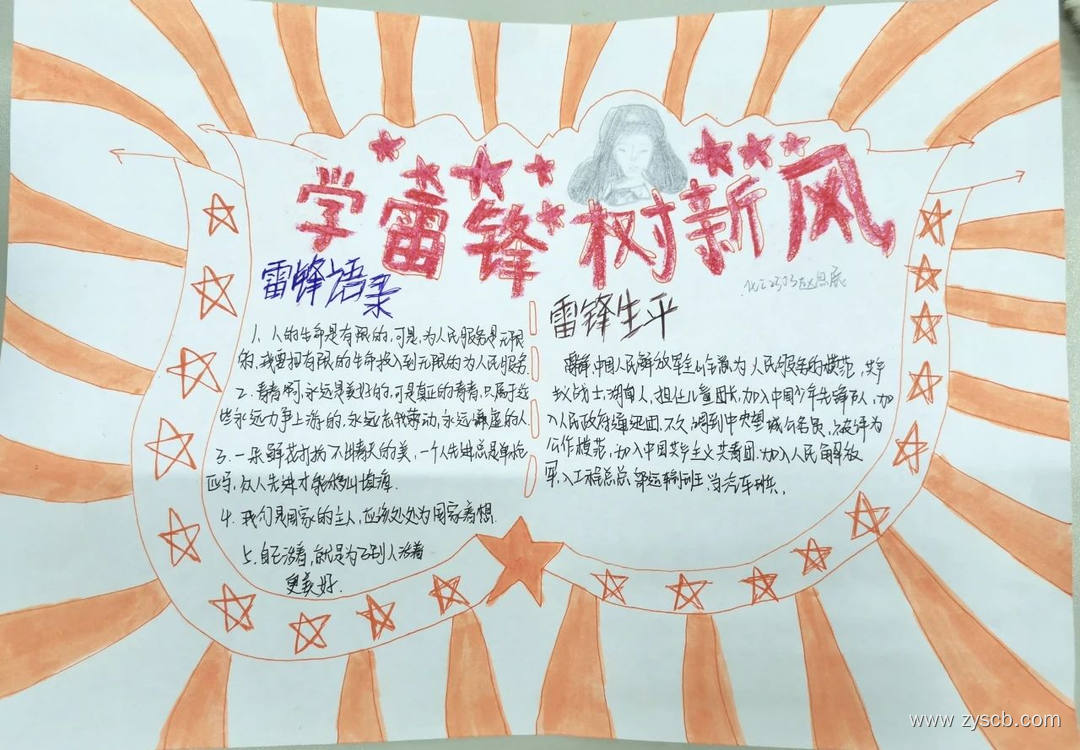 学雷锋树新风
雷锋语录
1. 人的生命是有限的,可是,为人民服务是无限
的,我要把有限的生命投入到无限的为人民服务
2. 青春啊,永远是美好的,可是真正的青春,只属于这
些永远力争上游的,永远忘我劳动,永远谦虚的人
3. 一朵鲜花打扮不出春天的美,一个人先进总是单枪
匹马,众人先进才能移山填海.
4. 我们是国家的主人,应该处处为国家着想.
5. 自己活着,就是为了别人活着
更美好.
雷锋生平
雷锋,中国人民解放军全心全意为人民服务的模范,共产
主义战士,湖南人,担任儿童团长,加入中国少年先锋队,加
入人民政府通讯团.不久调到中共望城公务员,被评为
工作模范,加入中国共产主义共青团.加入人民解放
军,入工程总总部运输班当汽车班长.
www.zyscb.com